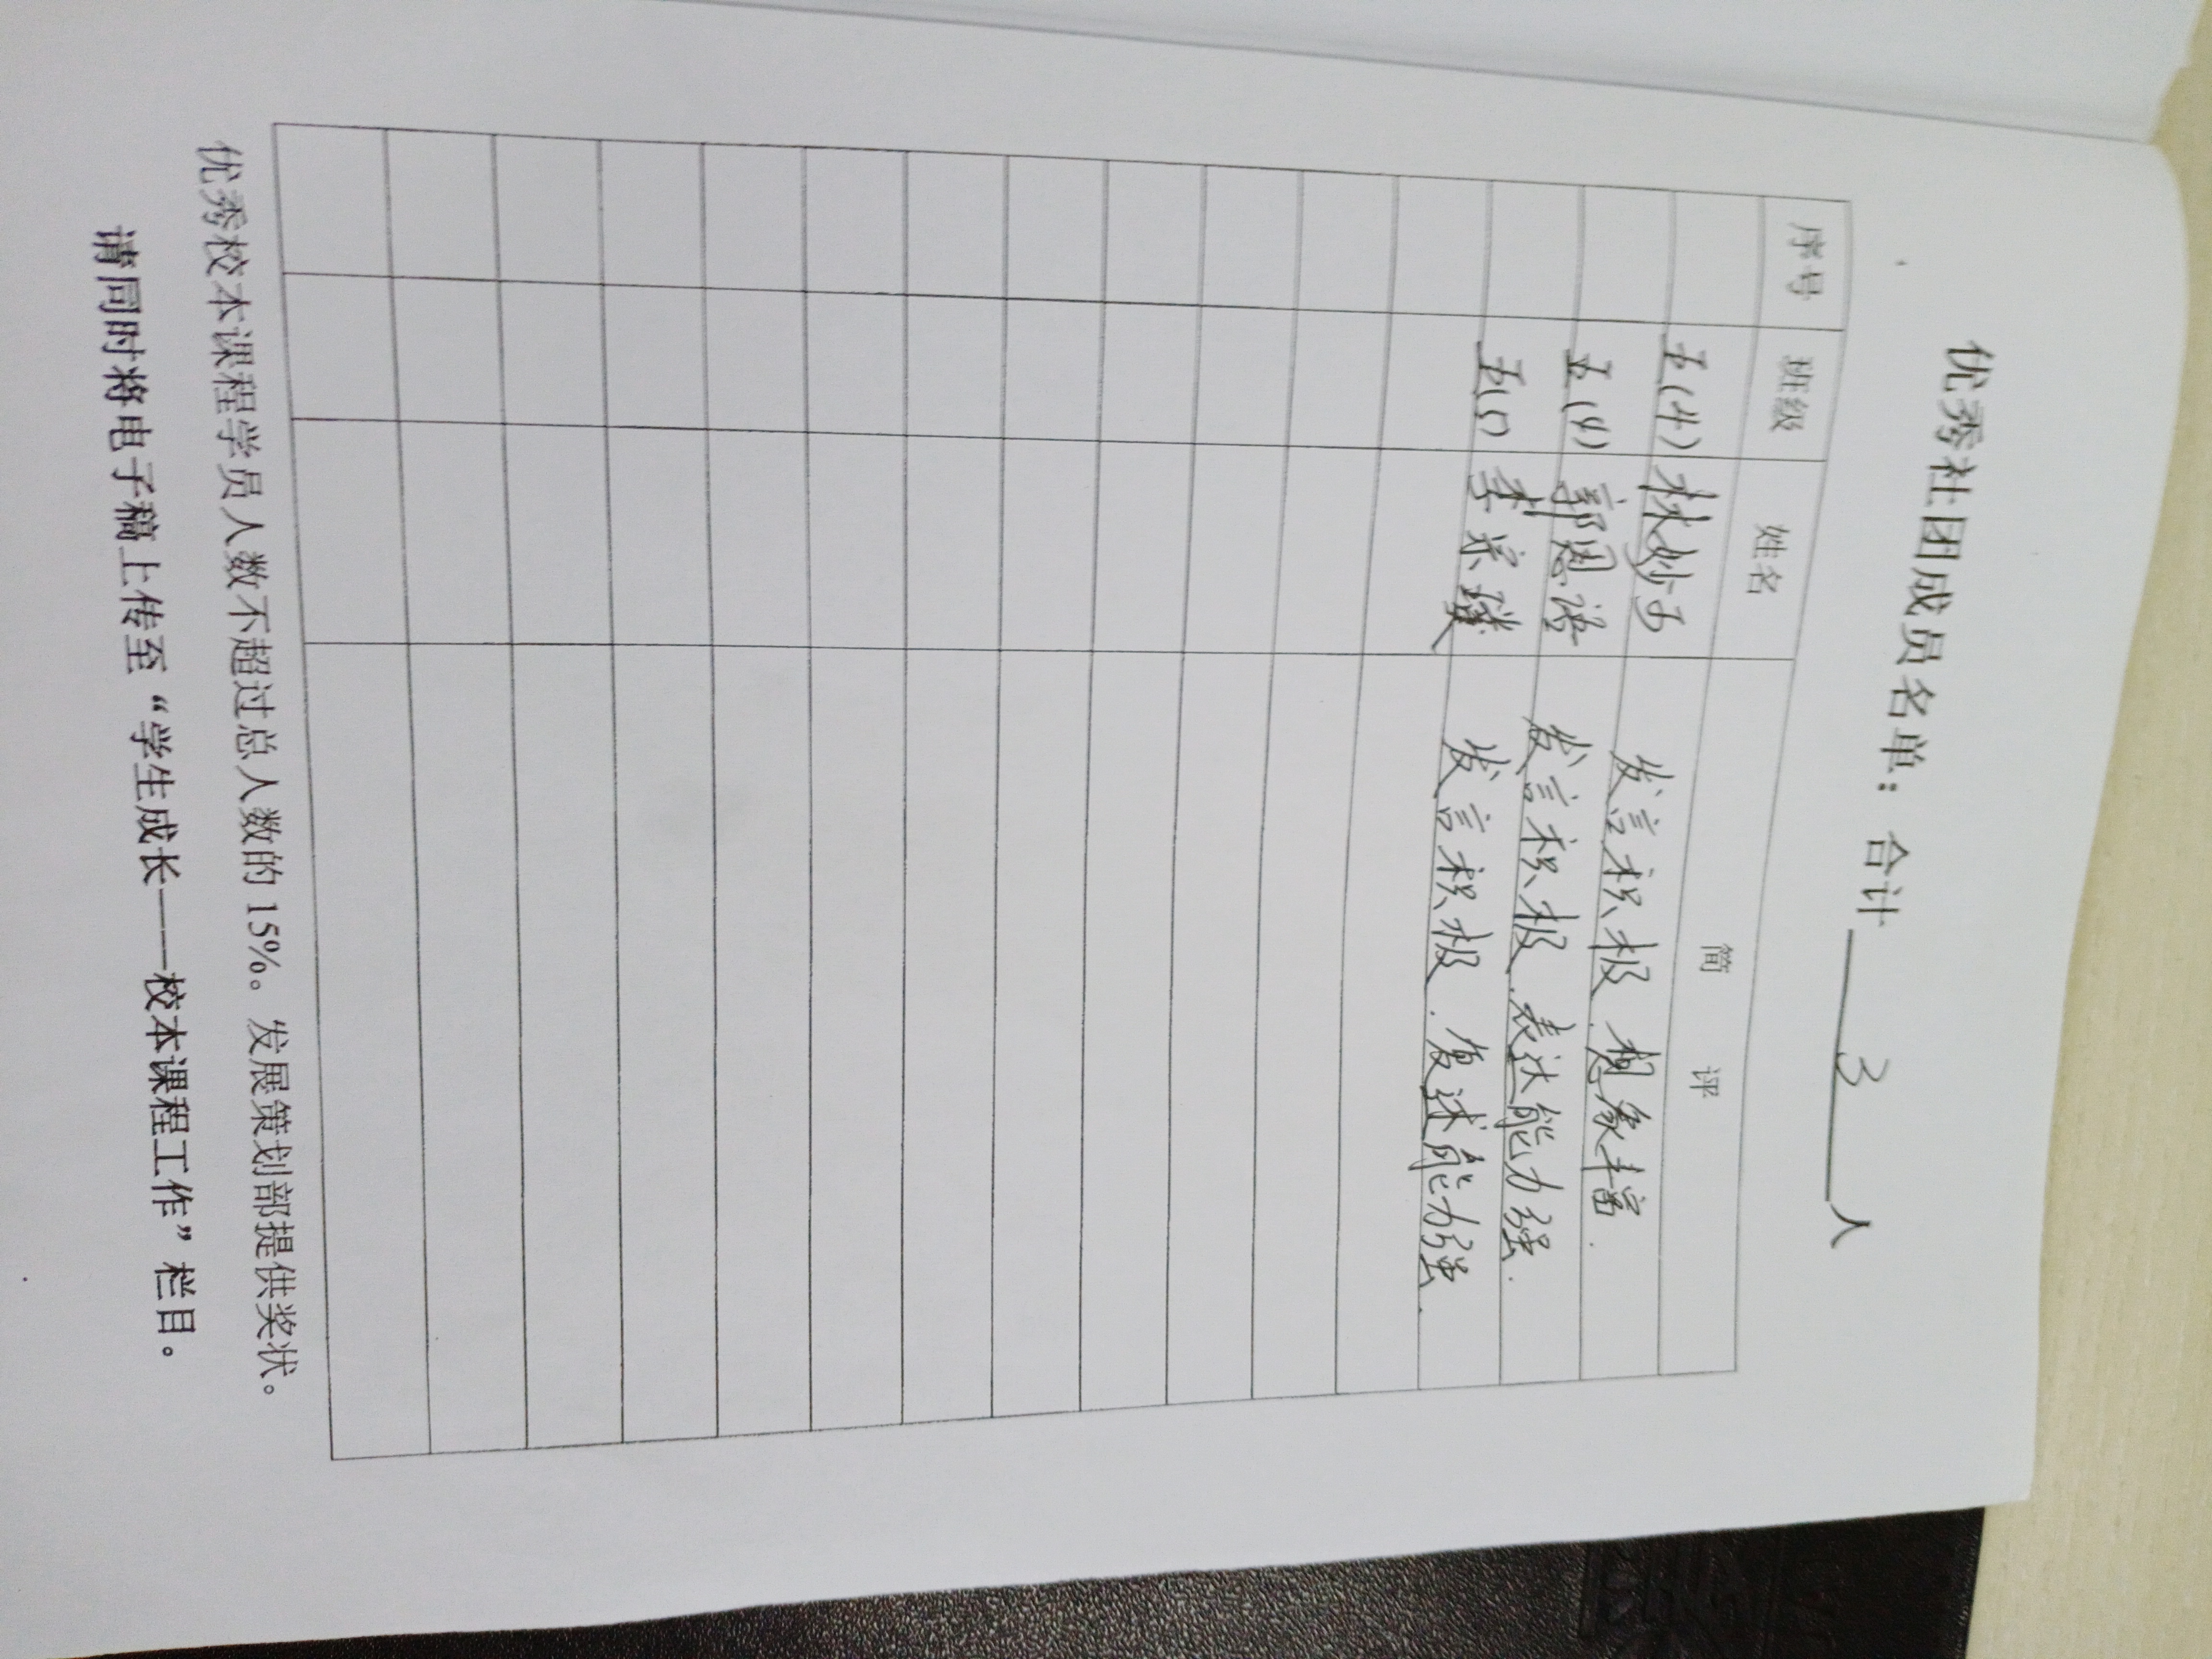 优秀社团成员名单：合计 3 人
序号 班级 姓名 简 评
五(4) 林妙 发言积极.想象丰富.
五(4) 郭恩语 发言积极.表达能力强.
李 发言积极.复述能力强.
优秀校本课程学员人数不超过总人数的15%。发展策划部提供奖状。
请同时将电子稿上传至“学生成长——校本课程工作”栏目。